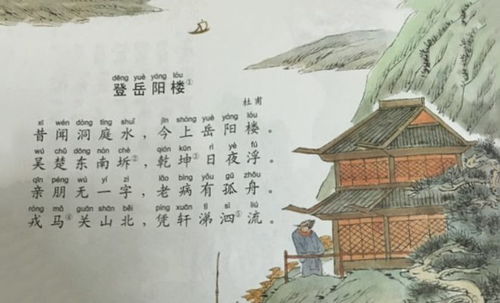 dēng yuè yáng lóu
登岳阳楼①
杜甫
xī wén dòng tíng shuǐ jīn shàng yuè yáng lóu
昔闻洞庭水，今上岳阳楼。
wú chǔ dōng nán chè qián kūn rì yè fú
吴楚东南坼②，乾坤③日夜浮。
qīn péng wú yí zì lǎo bìng yǒu gū zhōu
亲朋无一字，老病有孤舟。
róng mǎ guān shān běi píng xuān tì sì liú
戎马④关山北，凭轩涕泗⑤流。